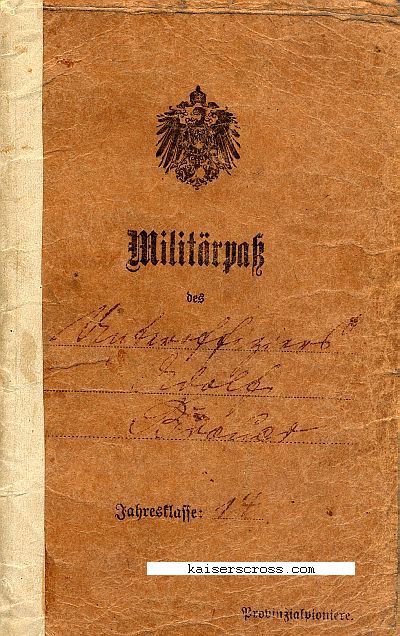 Militärpaß
des
Unteroffiziers
Adolf
Bräuer
Jahresklasse: 14
kaiserscross.com
Provinzialpioniere.